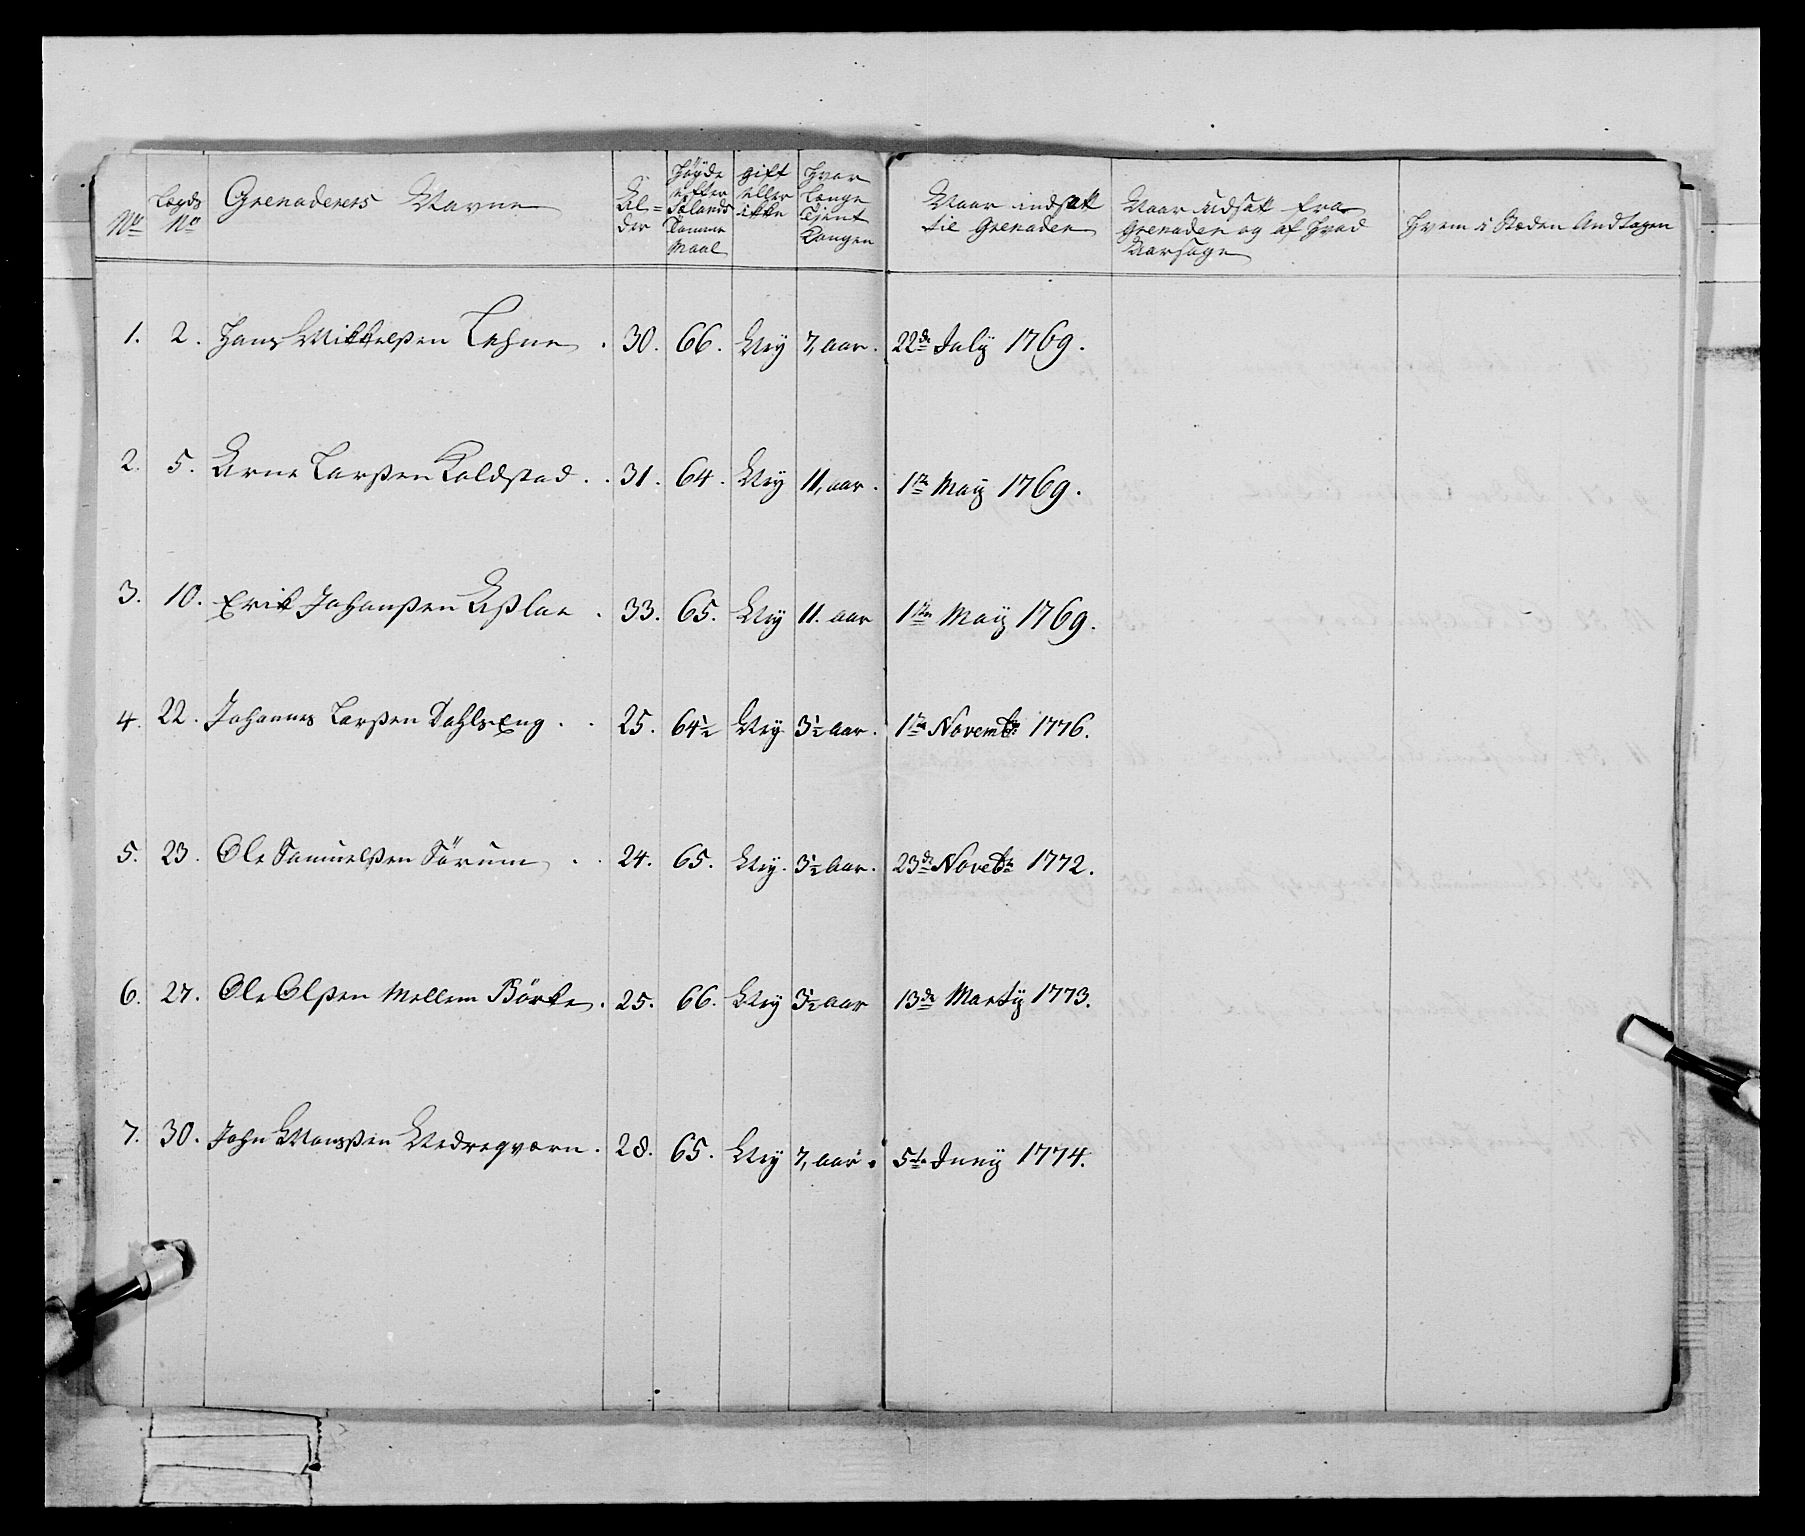 No Lægds No Grenaderers Navne Al=der Høyde efter Sælands Tomme Maal gift eller ikke Hvor længe tient Kongen Naar indsatt til Grenader Naar udsatt fra Grenader og af Hvad Aarsage Hvem i Stæden Andtagen
1. 2. Hans Mikkelßen Lehne . 30. 66. Ney 7, aar. 22de July 1769.
2. 5. Arne Larßen Koldstad . . 31. 64. Ney 11, aar. 1te Maÿ 1769.
3. 10. Erik Johanßen Aßlae . 33. 65. Ney 11. aar 1te Maÿ 1769.
4. 22. Johannes Larßen DahlsEng . . 25. 64½ Ney 3½ aar. 1te Novembr 1776.
5. 23. Ole Samuelßen Sörum . . 24. 65. Ney. 3½ aar. 23de Novebr 1772.
6. 27. Ole Olßen Mellem Börke . 25. 66. Ney 3½ aar 13de Martÿ 1773.
7. 30. John Monsßen Nedregværn . 28. 65. Ney 7, aar. 5te Junÿ 1774.